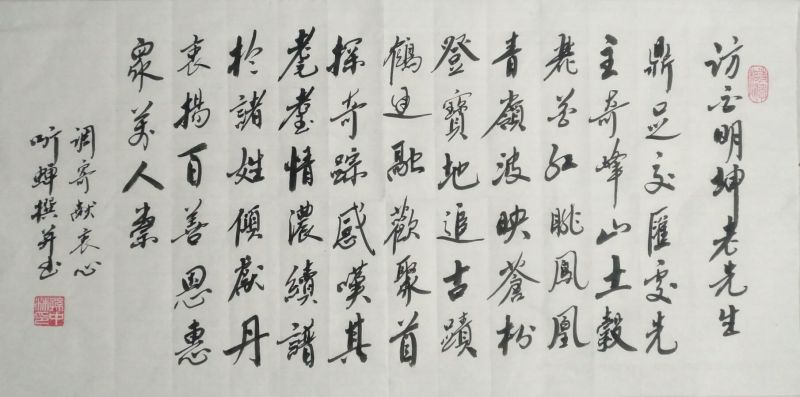 访明坤老先生
鼎足交匯處先
主奇峰山土穀
花红眺鳳凰
青嶺波映蒼松
登寶地追古蹟
鶴廷融歡聚首
探奇踪感嘆其
耄耋情濃續譜
於諸姓傾獻丹
衷揚百善恩惠
眾萬人崇
调寄献衷心
听蝉撰并书